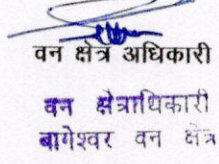 वन क्षेत्र अधिकारी
वन क्षेत्राधिकारी
बागेश्वर वन क्षेत्र